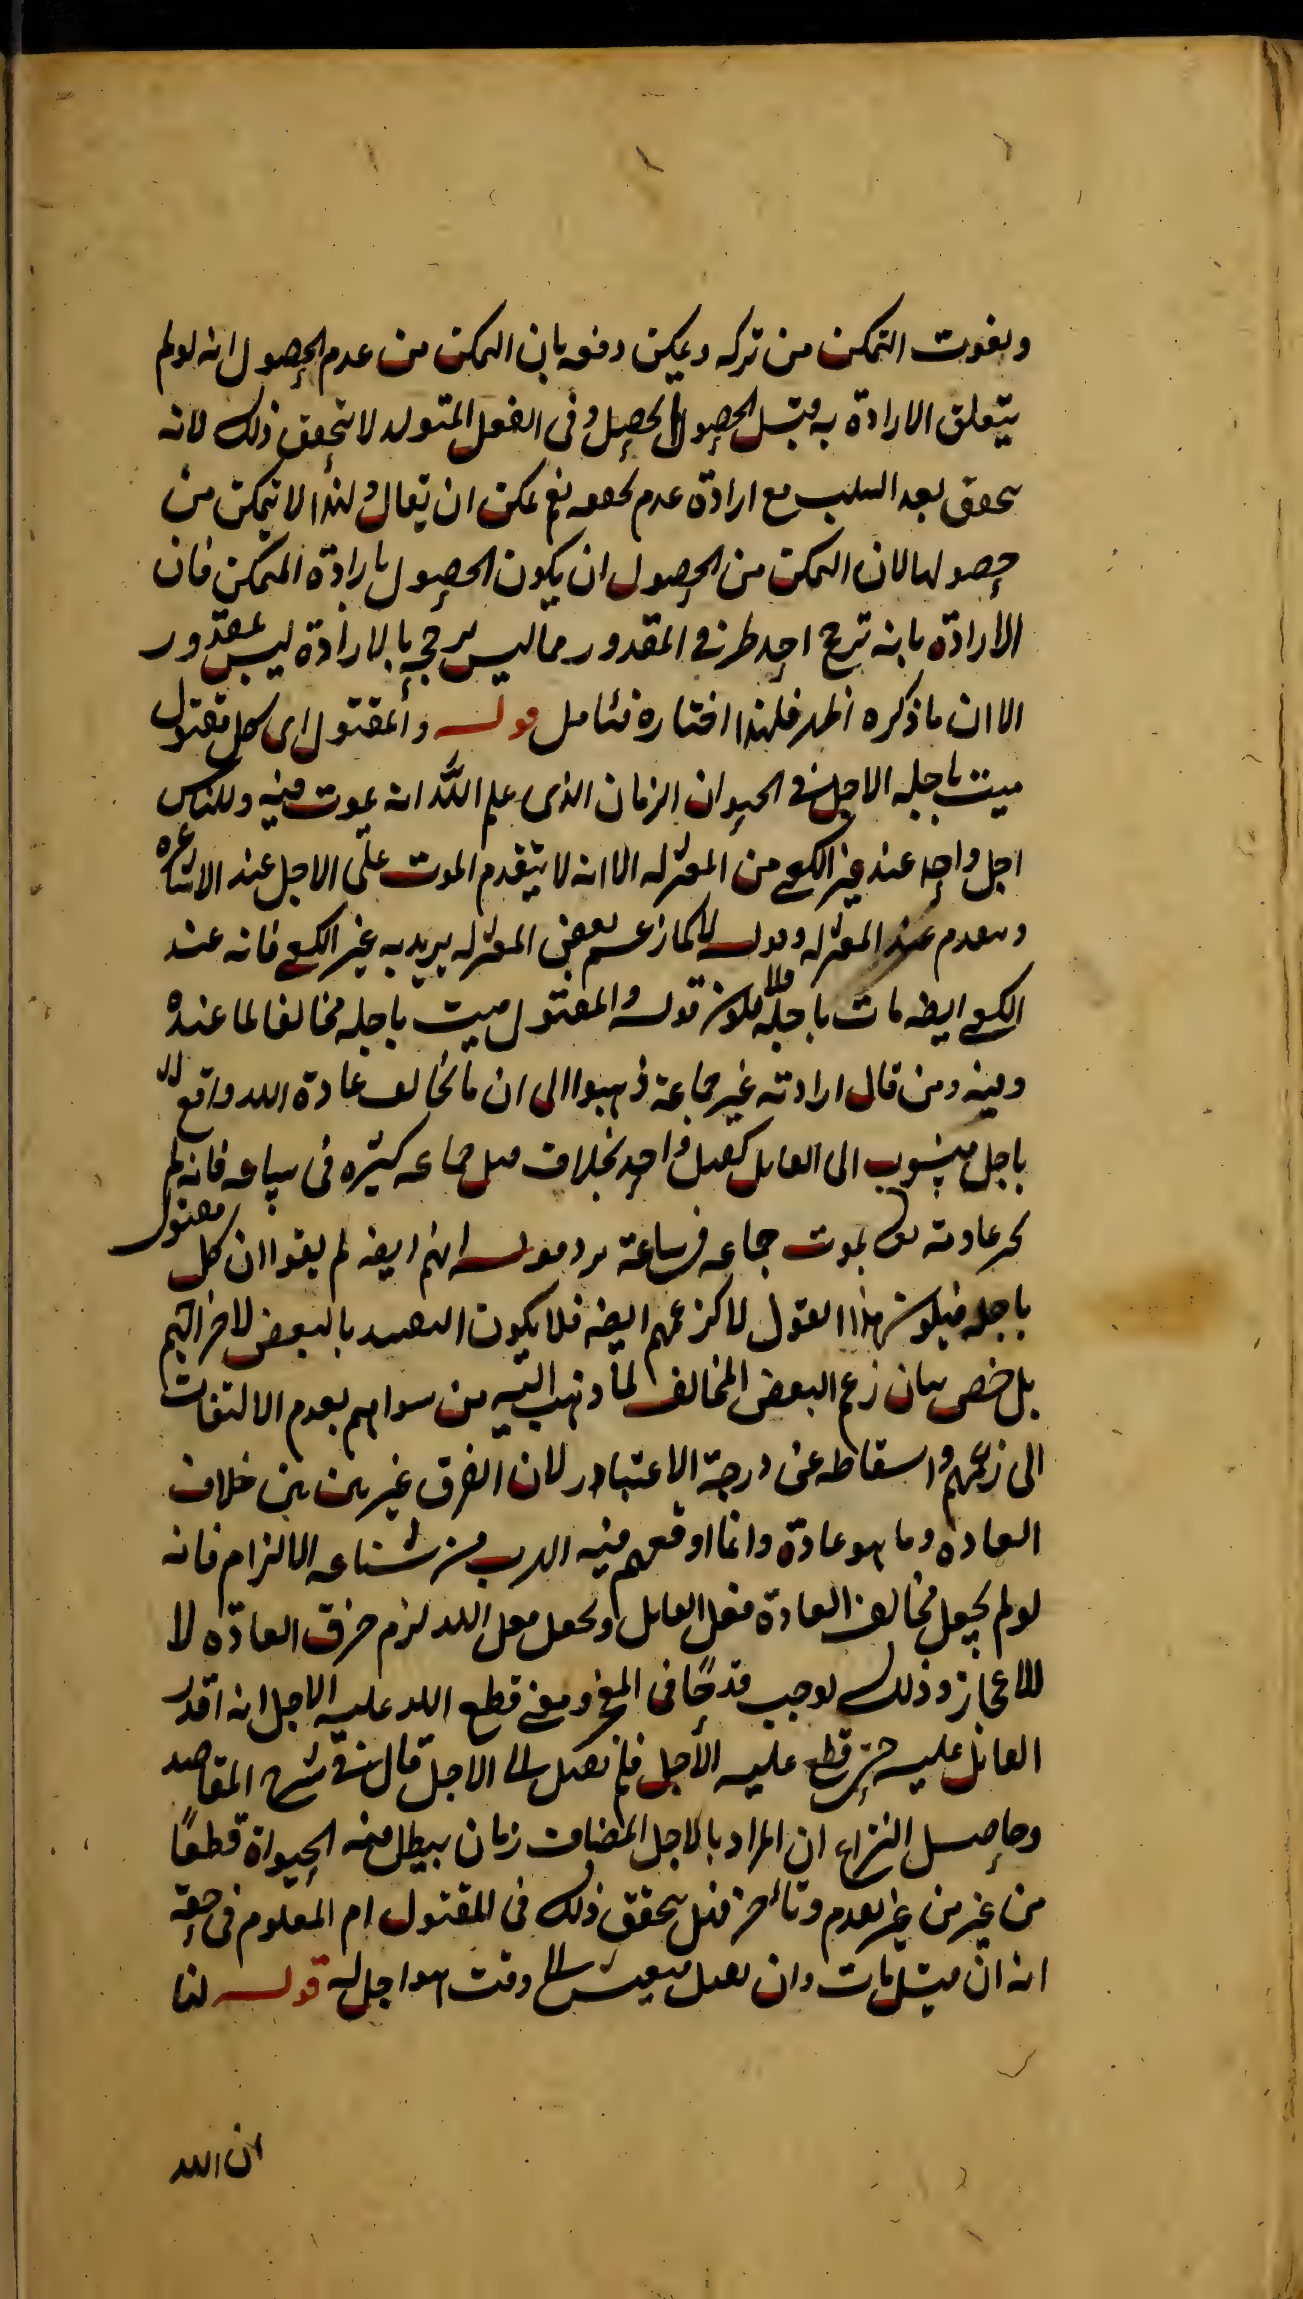 ويفوت التمكن من تركه ويمكن دفعه بان التمكن من عدم الحصول انه لو لم
يتعلق الارادة به قبل الحصول لم يحصل وفى الفعل المتولد لا يتحقق ذلك لانه
يتحقق بعد السبب مع ارادة عدم تحققه نعم يمكن ان يقال ولهذا لا يتمكن من
حصولها لان التمكن من الحصول ان يكون الحصول بارادة المتمكن فان
الارادة بانه ترجح احد طرفى المقدور مما ليس يرجح بالارادة ليس بمقدور
الا ان ما ذكره اظهر فلهذا اختاره فتامل قوله والمقتول اى كل مقتول
ميت باجله الاجل فى الحيوان الزمان الذى علم الله انه يموت فيه وللناس
اجل واحد عند غير الكعبى من المعتزله الا انه لا يتقدم الموت على الاجل عند الاشاعره
ويتقدم عند المعتزله وقوله لا كما زعم بعض المعتزله يريد به غير الكعبى فانه عند
الكعبى ايضه مات باجله فلا يكون قوله والمقتول ميت باجله مخالفا لما عنده
وفيه ومن قال ارادته غير جماعة ذهبوا الى ان ما يخالف عادة الله واقع لا
باجل منسوب الى القاتل كقتل واحد بخلاف قتل جماعه كثيره فى ساعه فانه لم
يجر عادته تعالى بموت جماعه فى ساعة يرد قوله انهم ايضه لم يقولوا ان كل مقتول
باجله فيكون هذا القول لا كزعمهم ايضه فلا يكون التقييد بالبعض لاخراجهم
بل خص بيان زعم البعض المخالف لما ذهب اليه من سواهم بعدم الالتفات
الى زعمهم واسقاطه عن درجة الاعتبار لان الفرق غير بين بين خلاف
العاده وما هو عادة وانما اوقعهم فيه الهرب من شناعه الالزام فانه
لو لم يجعل مخالف العادة فعل القاتل وجعل فعل الله لزم خرق العادة لا
للاعجاز وذلك يوجب قدحًا فى المعجز ومعنى قطع الله عليه الاجل انه اقدر
القاتل عليه حتى قطع عليه الاجل فلم يصل الى الاجل قال فى شرح المقاصد
وحاصل النزاع ان المراد بالاجل المضاف زمان يبطل فيه الحيوة قطعًا
من غير من غير تقدم وتأخر فهل يتحقق ذلك فى المقتول ام المعلوم فى حقه
انه ان قتل مات وان لم يقتل يعيش الى وقت هو اجل له قوله لنا
ان الله